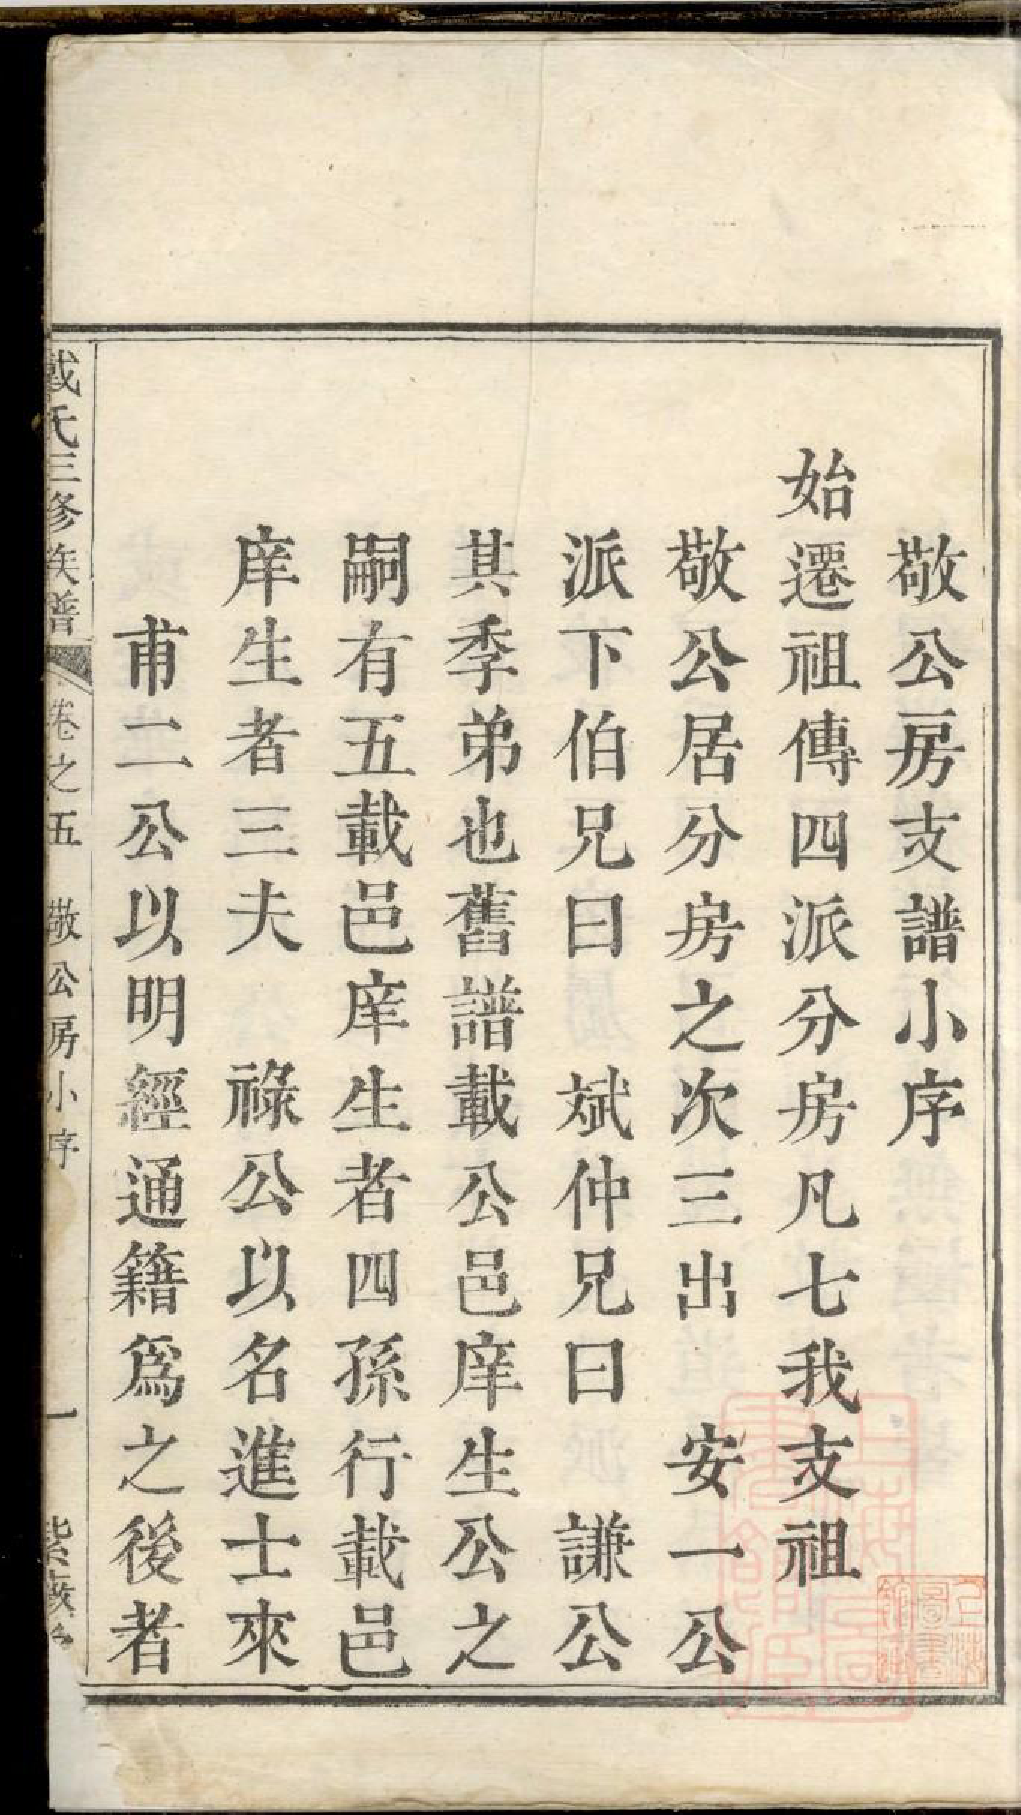 敬公房支譜小序
始遷祖傳四派分房凡七我支祖
敬公居分房之次三出　安一公
派下伯兄曰　斌仲兄曰　謙公
其季弟也舊譜載公邑庠生公之
嗣有五載邑庠生者四孫行載邑
庠生者三夫　祿公以名進士來
甫二公以明經通籍爲之後者
戴氏三修族譜　卷之五　敬公房小序　一